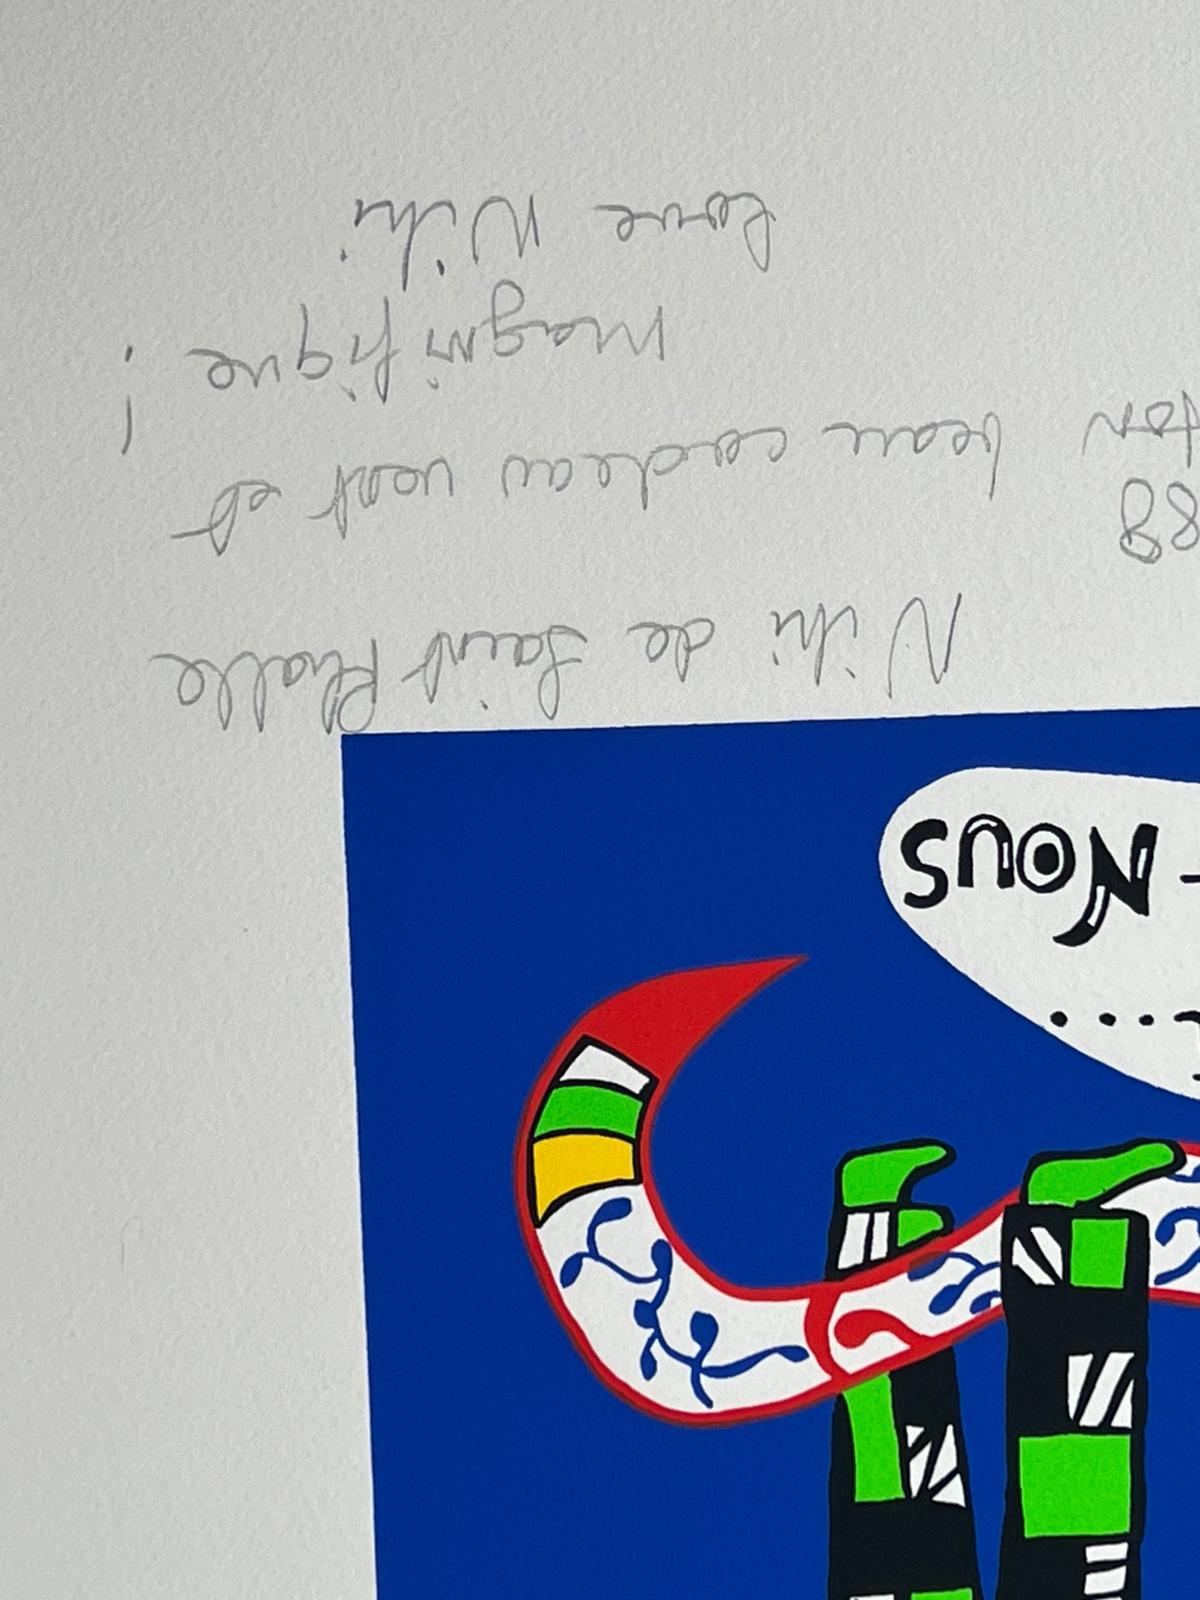 ....
- NOUS
Niki de Saint Phalle
88
ton beau cadeau vert et
Magnifique !
Love Niki